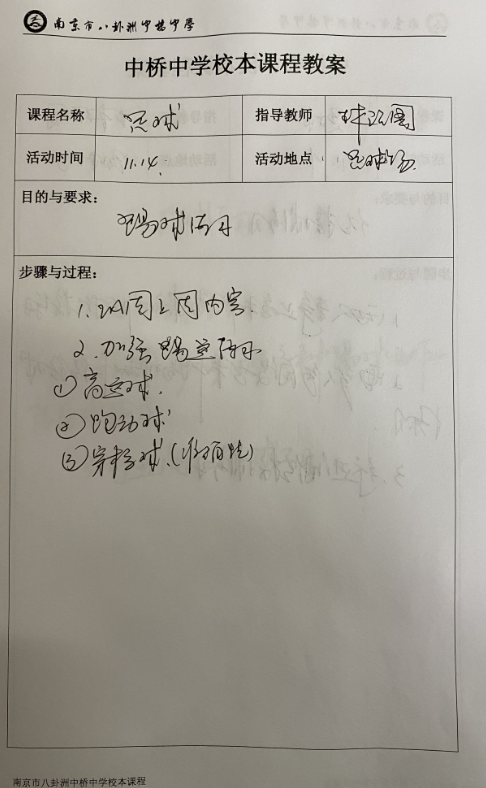 南京市八卦洲中桥中学
中桥中学校本课程教案
课程名称 足球 指导教师
活动时间 11.14. 活动地点 足球场
目的与要求:
踢球
步骤与过程:
1. 上周内容.
2. 加强踢
① 高远球.
② 跑动球
③ 穿裆球.(
南京市八卦洲中桥中学校本课程